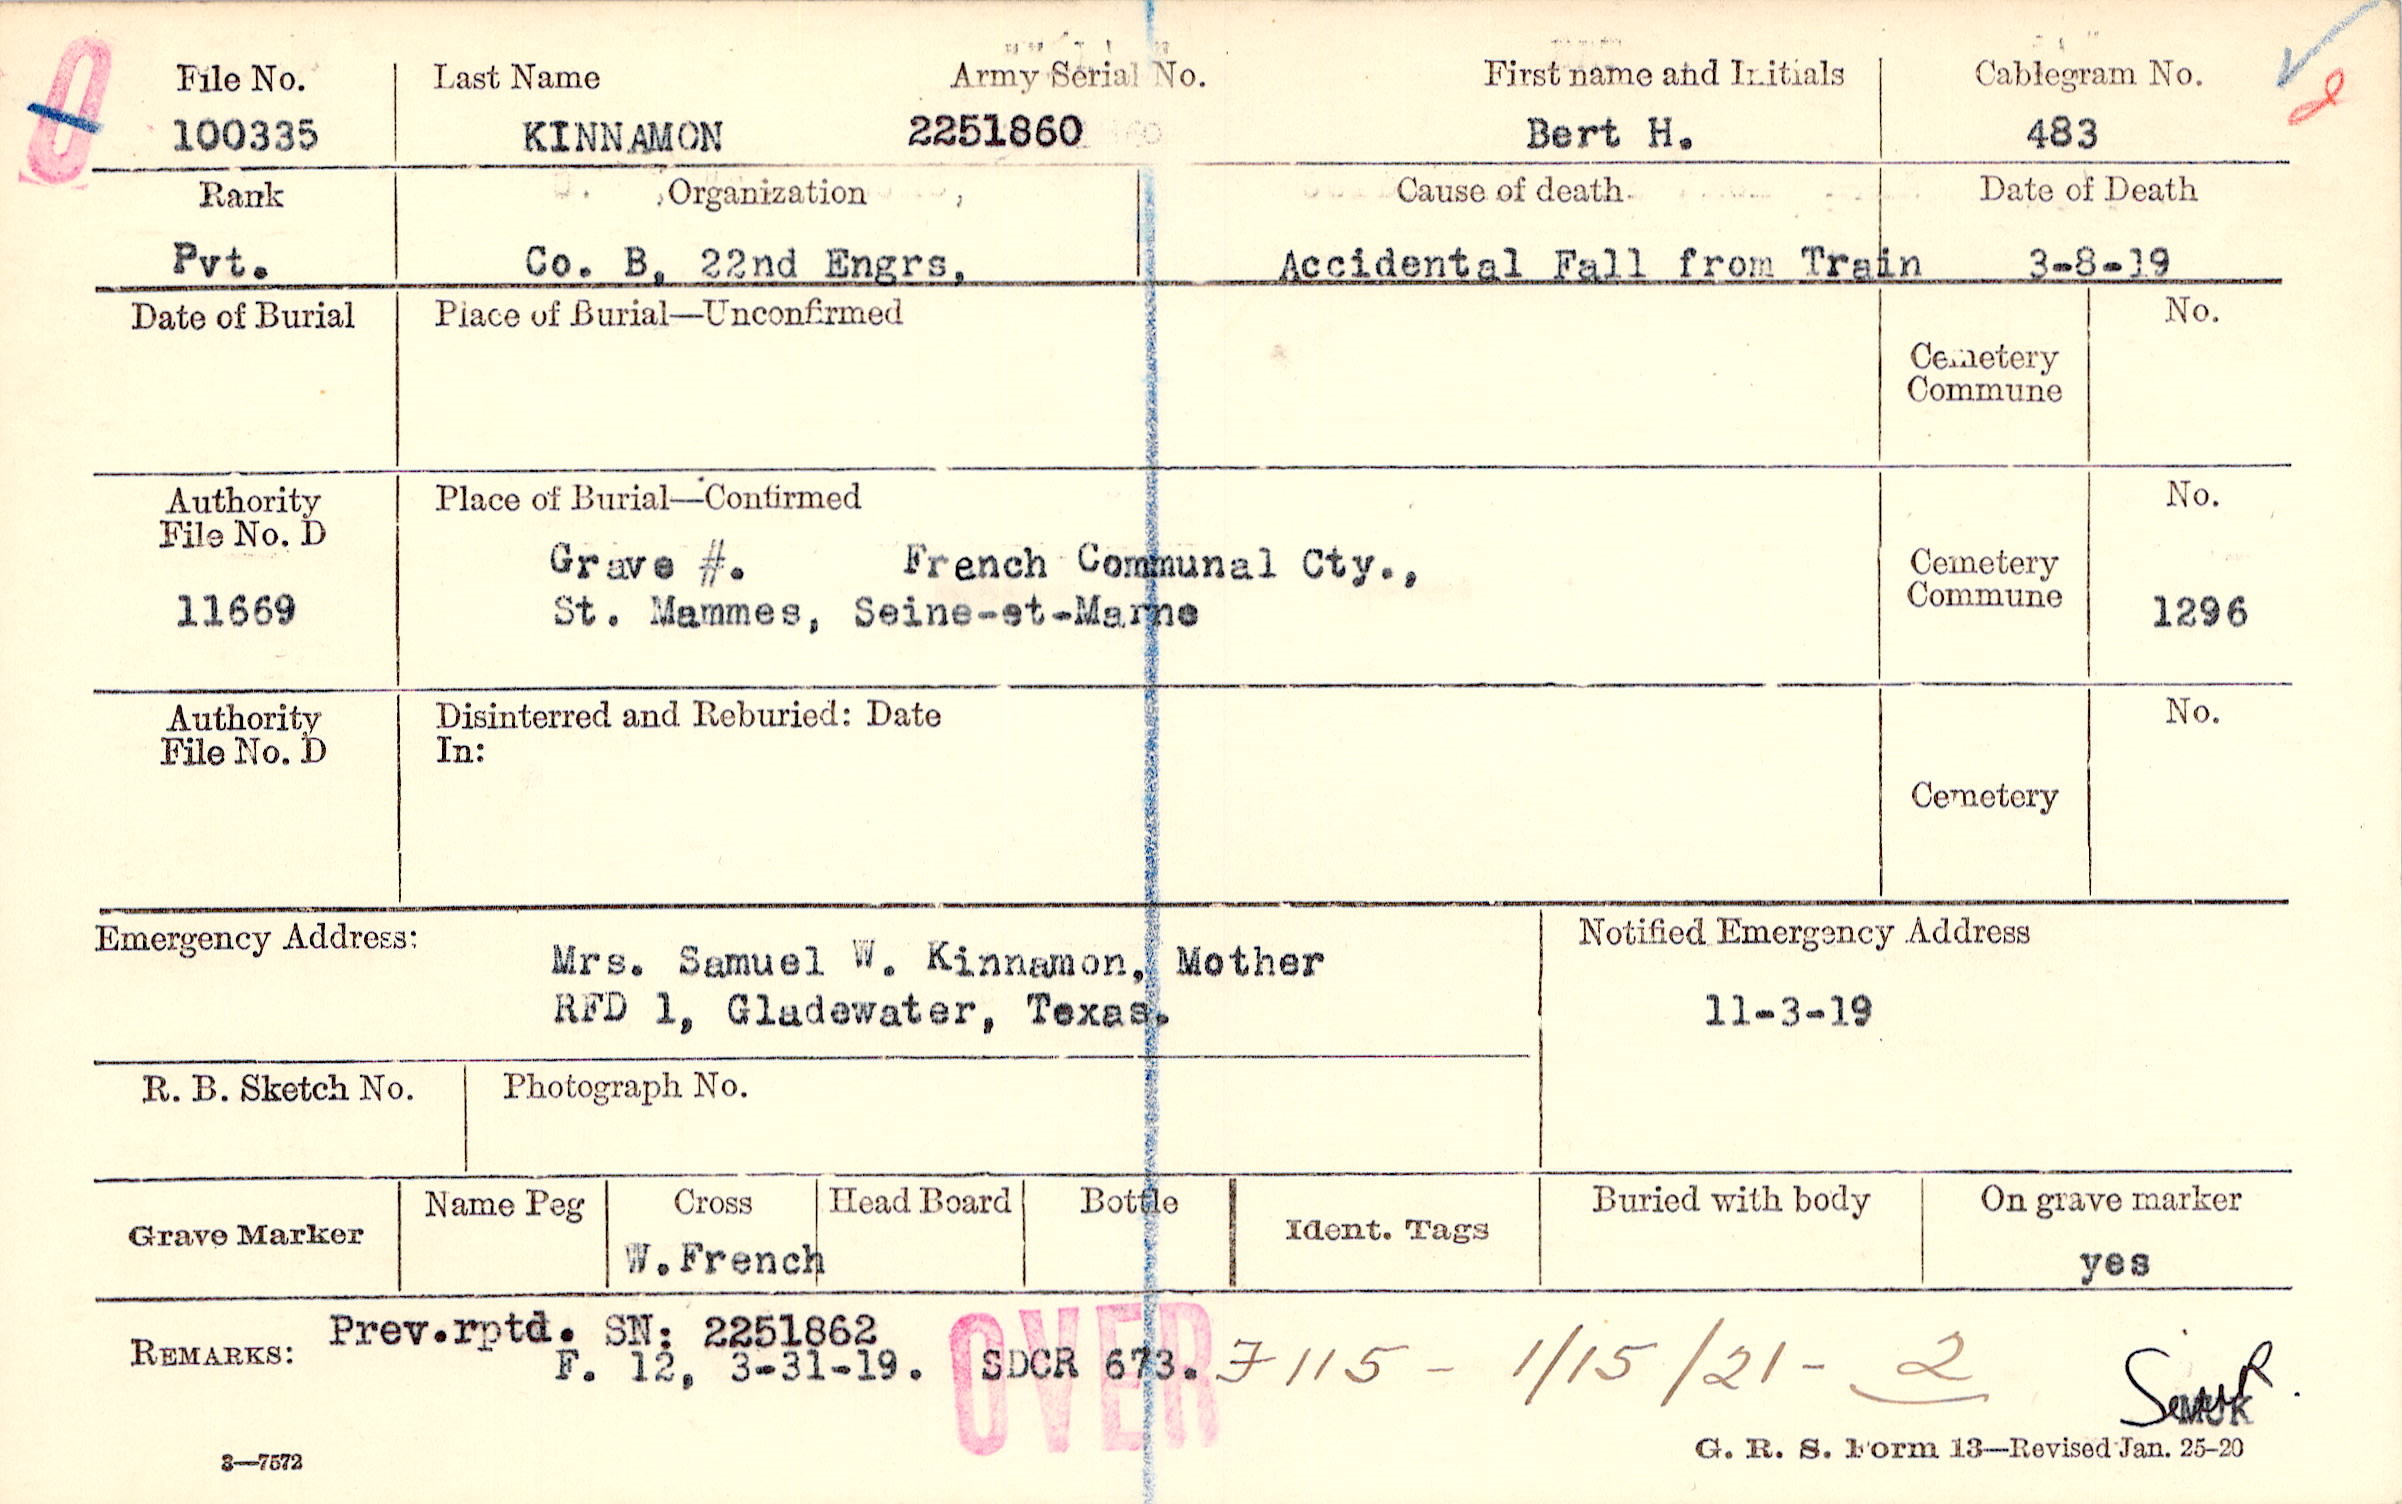 File No. Last Name Army Serial No. First name and Initials Cablegram No.
100335 KINNAMON 2251860 Bert H. 483
Rank Organization Cause of death Date of Death
Pvt. Co. B, 22nd Engrs, Accidental Fall from Train 3-8-19
Date of Burial Place of Burial—Unconfirmed No.
Cemetery
Commune
Authority Place of Burial—Confirmed No.
File No. D
Grave #. French Communal Cty., Cemetery
11669 St. Mammes, Seine-et-Marne Commune 1296
Authority Disinterred and Reburied: Date No.
File No. D In:
Cemetery
Emergency Address: Notified Emergency Address
Mrs. Samuel W. Kinnamon, Mother
RFD 1, Gladewater, Texas. 11-3-19
R. B. Sketch No. Photograph No.
Grave Marker Name Peg Cross Head Board Bottle Ident. Tags Buried with body On grave marker
W.French yes
REMARKS: Prev.rptd. SN: 2251862
F. 12, 3-31-19. SDCR 673. F115 - 1/15/21 - 2
OVER
MJK
3—7572 G. R. S. Form 13—Revised Jan. 25-20